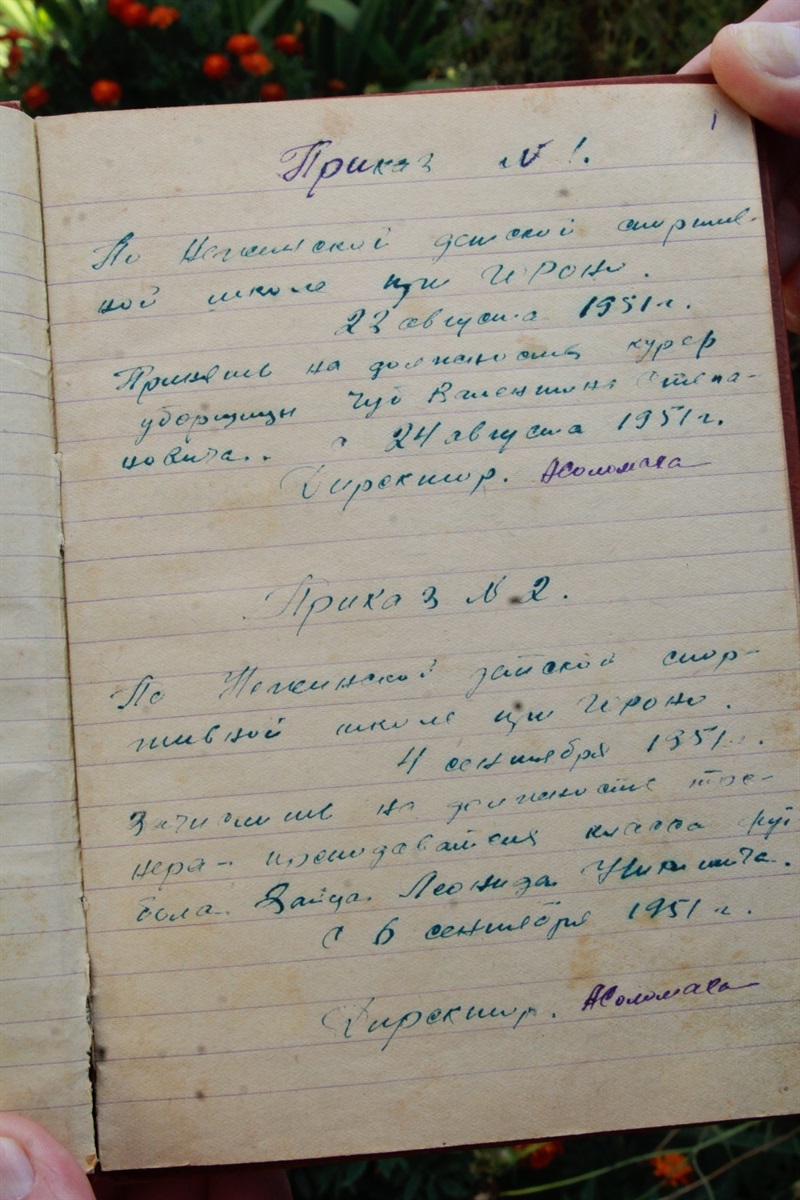 1
Приказ № 1.
По Нежинской детской спортив-
ной школе при ГорОНО.
23 августа 1951 г.
Принять на должность курьер
уборщицы Чуб Валентина Степа-
новича.. с 24 августа 1951 г.
Директор. АСоломаха
Приказ № 2.
По Нежинской детской спор-
тивной школе при ГорОНО.
4 сентября 1951 г.
Зачислить на должность тре-
нера-преподавателя класса фут
бола Зайца Леонида Никитича.
с 6 сентября 1951 г.
Директор. АСоломаха